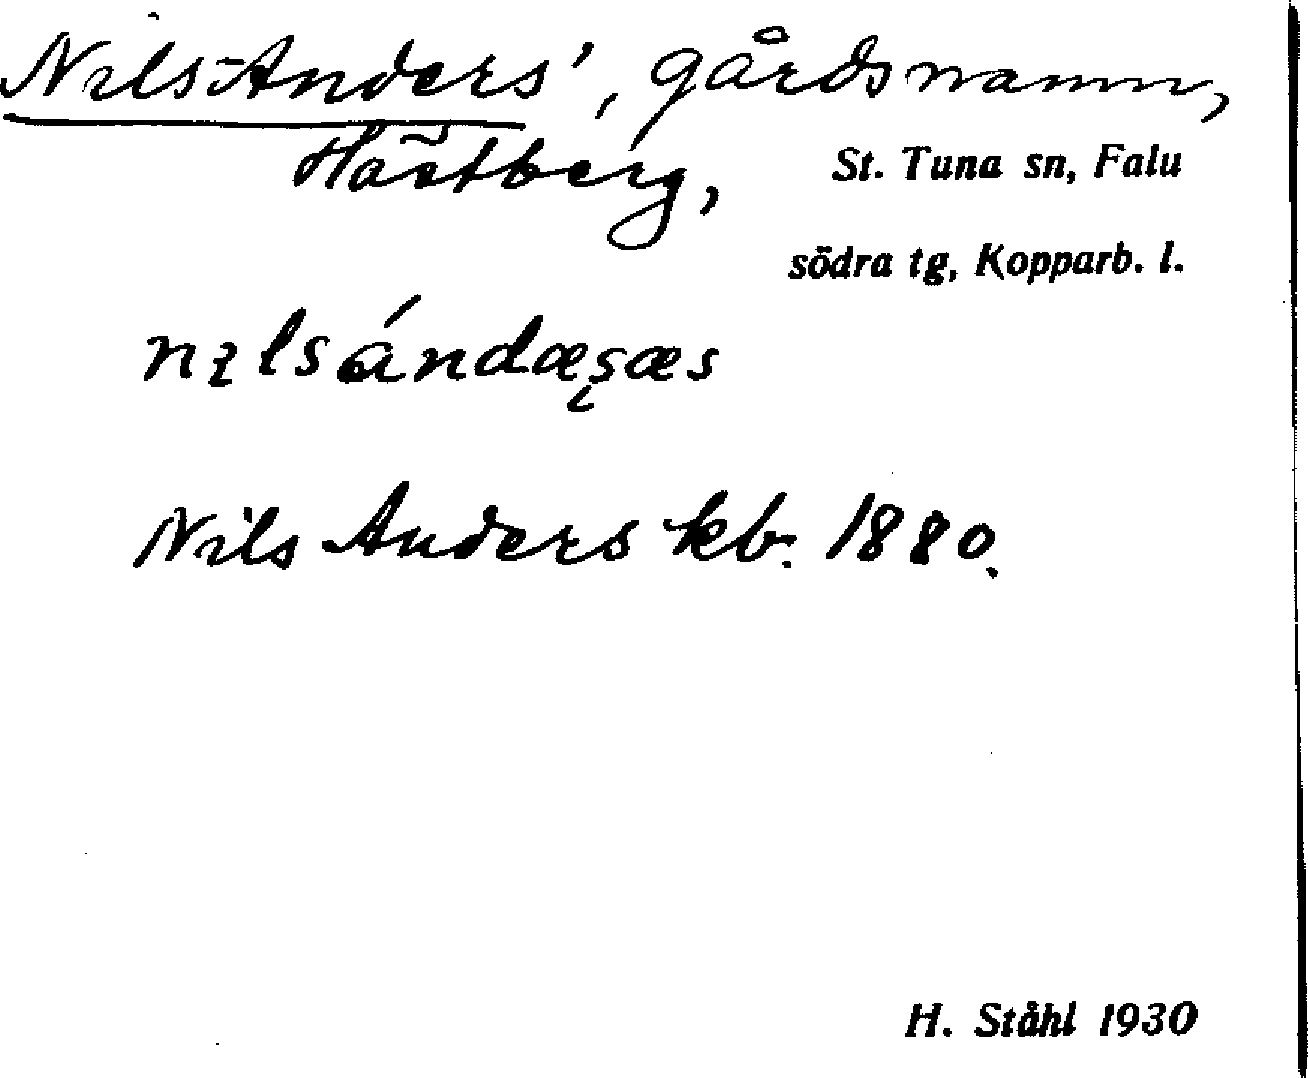 Nils-Anders', gårdsnamn,
Hästberg, St. Tuna sn, Falu
södra tg, Kopparb. l.
Nils Anders kb. 1880.
H. Ståhl 1930